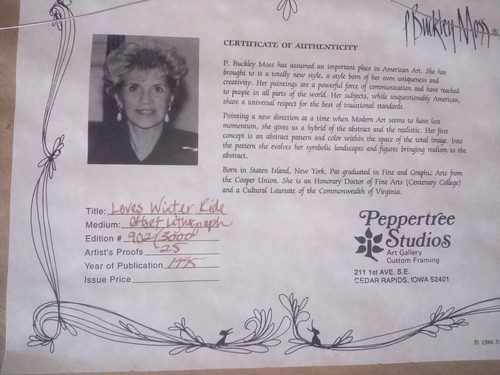 P Buckley Moss
CERTIFICATE OF AUTHENTICITY
P. Buckley Moss has assumed an important place in American Art. She has
brought to it a totally new style, a style born of her own uniqueness and
creativity. Her paintings are a powerful force of communication and have reached
to people in all parts of the world. Her subjects, while unquestionably American,
share a universal respect for the best of traditional standards.
Pointing a new direction at a time when Modern Art seems to have lost
momentum, she gives us a hybrid of the abstract and the realistic. Her first
concept is an abstract pattern and color within the space of the total image. Into
the pattern she evolves her symbolic landscapes and figures bringing realism to the
abstract.
Born in Staten Island, New York, Pat graduated in Fine and Graphic Arts from
the Cooper Union. She is an Honorary Doctor of Fine Arts (Centenary College)
and a Cultural Laureate of the Commonwealth of Virginia.
Title: Loves Winter Ride
Medium: Offset Lithograph
Edition # 902/5000
Artist's Proofs 25
Year of Publication 1995
Issue Price
Peppertree
Studios
Art Gallery
Custom Framing
211 1st AVE. S.E.
CEDAR RAPIDS, IOWA 52401
© 1986 P.